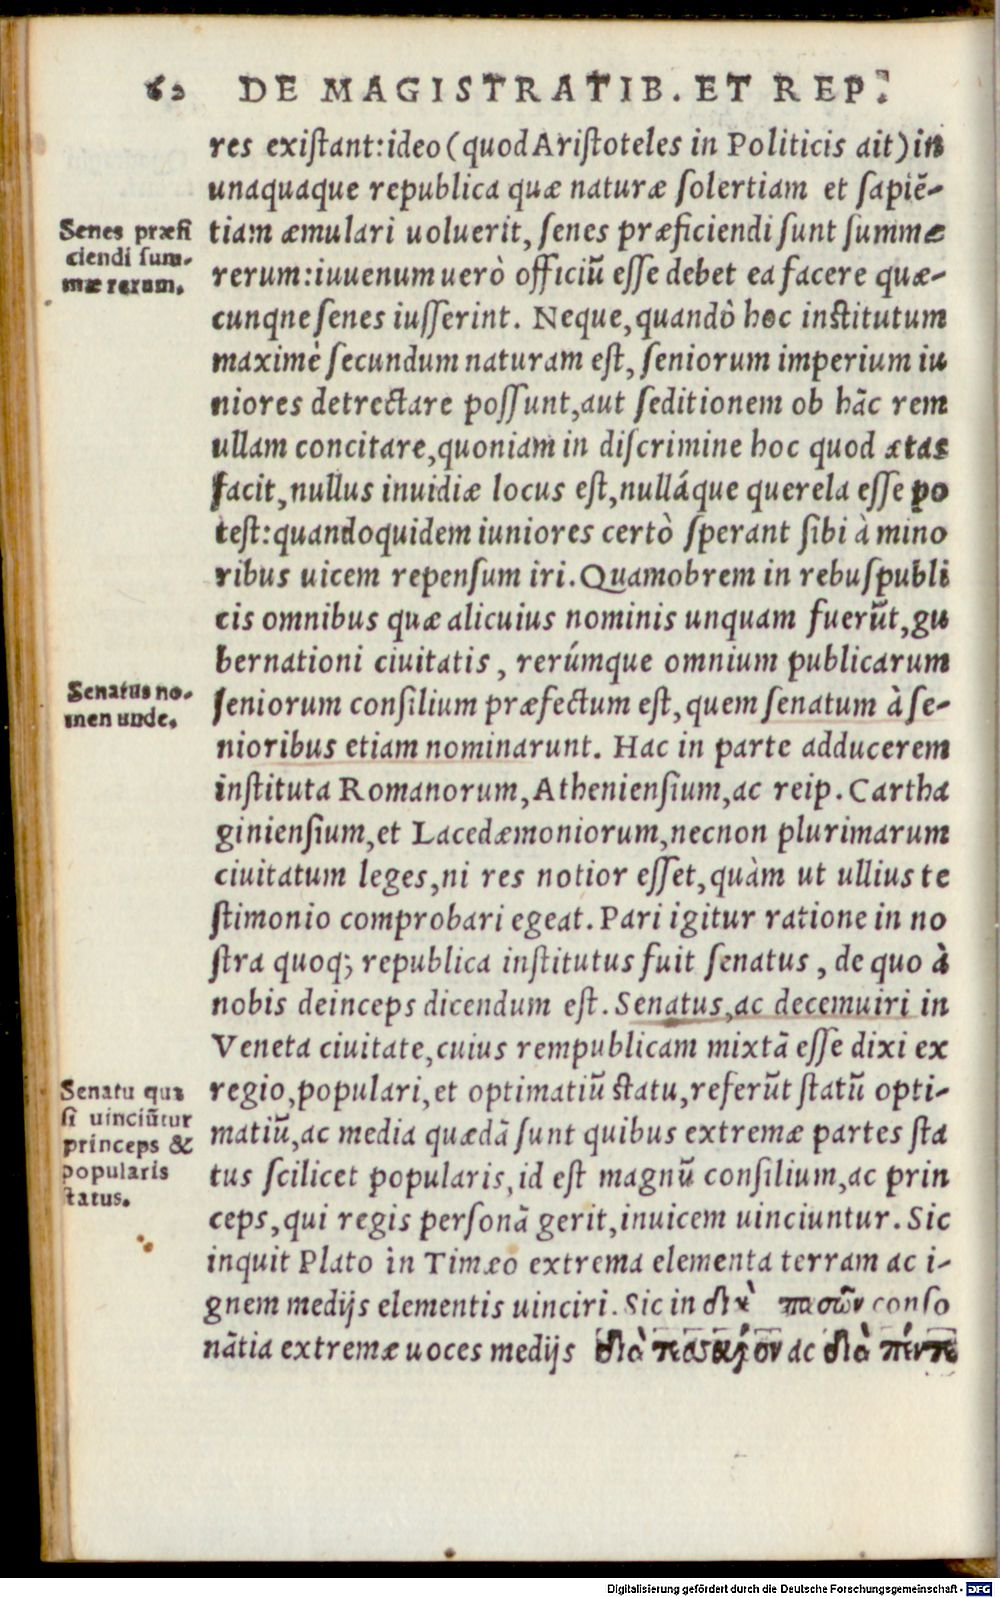 62 DE MAGISTRATIB. ET REP.
res existant: ideo (quod Aristoteles in Politicis ait) in
unaquaque republica quæ naturæ solertiam et sapiẽ-
Senes præfi
ciendi sum-
mæ rerum.
tiam æmulari uoluerit, senes præficiendi sunt summæ
rerum: iuuenum uerò officiũ esse debet ea facere quæ-
cunqne senes iusserint. Neque, quandò hoc institutum
maximè secundum naturam est, seniorum imperium iu
niores detrectare possunt, aut seditionem ob hãc rem
ullam concitare, quoniam in discrimine hoc quod ætas
facit, nullus inuidiæ locus est, nulláque querela esse po
test: quandoquidem iuniores certò sperant sibi à mino
ribus uicem repensum iri. Quamobrem in rebuspubli
cis omnibus quæ alicuius nominis unquam fuerũt, gu
bernationi ciuitatis, rerúmque omnium publicarum
Senatus no-
men unde.
seniorum consilium præfectum est, quem senatum à se-
nioribus etiam nominarunt. Hac in parte adducerem
instituta Romanorum, Atheniensium, ac reip. Cartha
giniensium, et Lacedæmoniorum, necnon plurimarum
ciuitatum leges, ni res notior esset, quàm ut ullius te
stimonio comprobari egeat. Pari igitur ratione in no
stra quoq; republica institutus fuit senatus, de quo à
nobis deinceps dicendum est. Senatus, ac decemuiri in
Veneta ciuitate, cuius rempublicam mixtã esse dixi ex
Senatu qua
si uinciũtur
princeps &
popularis
status.
regio, populari, et optimatiũ statu, referũt statũ opti-
matiũ, ac media quædã sunt quibus extremæ partes sta
tus scilicet popularis, id est magnũ consilium, ac prin
ceps, qui regis personã gerit, inuicem uinciuntur. Sic
inquit Plato in Timæo extrema elementa terram ac i-
gnem medijs elementis uinciri. Sic in διὰ πασῶν conso
nãtia extremæ uoces medijs διὰ τεσσάρων ac διὰ πέντε
Digitalisierung gefördert durch die Deutsche Forschungsgemeinschaft - DFG